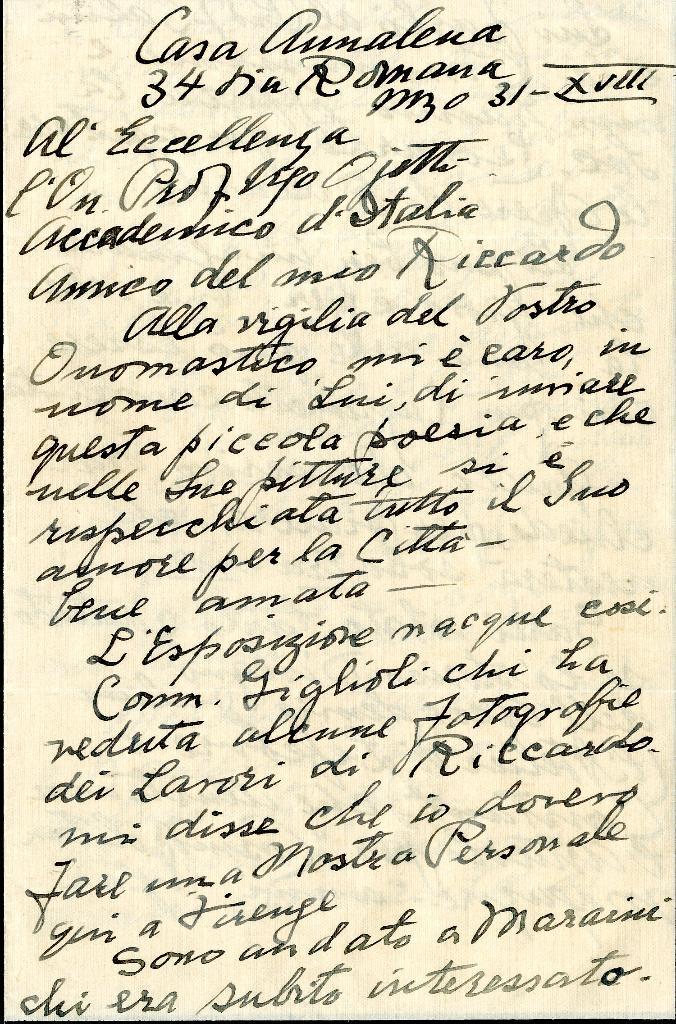 Casa Annalena
34 Via Romana
Mzo 31 - XVIII
Al' Eccellenza
l'On. Prof. Ugo Ojetti
Accademico d'Italia
Amico del mio Riccardo
Alla vigilia del Vostro
Onomastico mi è caro, in
nome di Lui, di inviare
questa piccola poesia, e che
nelle Sue pitture si è
rispecchiata tutto il Suo
amore per la Città -
bene amata -
L'Esposizione nacque così.
Comm. Giglioli chi ha
veduta alcune Fotografie
dei Lavori di Riccardo.
mi disse che io dovero
fare una Mostra Personale
qui a Firenze
Sono andato a Maraini
chi era subito interessato.